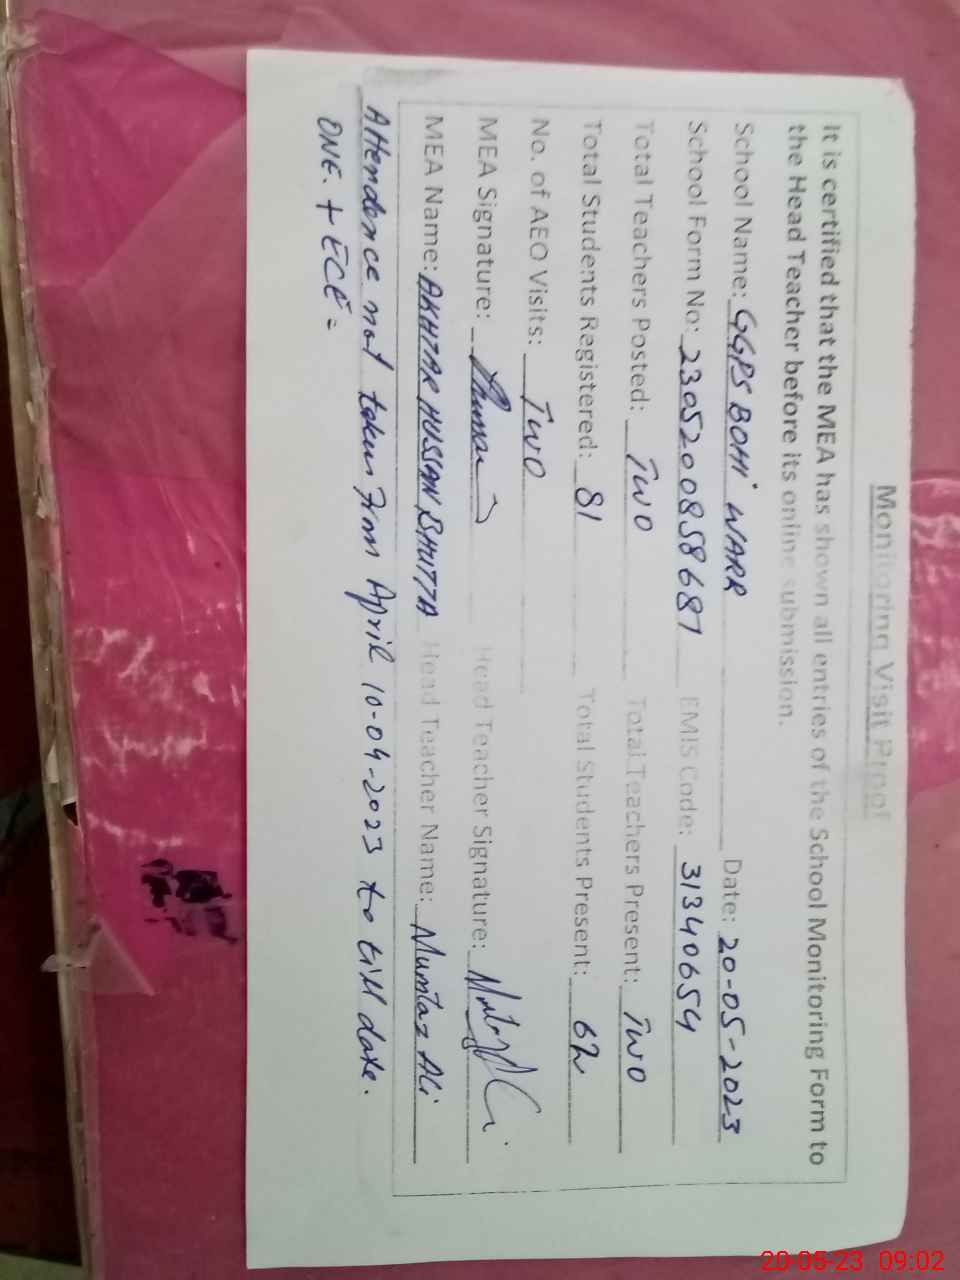 Monitoring Visit Proof
It is certified that the MEA has shown all entries of the School Monitoring Form to
the Head Teacher before its online submission.
School Name: GGPS BOHI WARR Date: 20-05-2023
School Form No: 2305200858687 EMIS Code: 31340654
Total Teachers Posted: Two Total Teachers Present: Two
Total Students Registered: 81 Total Students Present: 62
No. of AEO Visits: Two
MEA Signature: Head Teacher Signature:
MEA Name: AKHTAR HUSSAN BHUTTA Head Teacher Name: Mumtaz Ali
Attendence not taken From April 10-04-2023 to till date.
ONE. + ECE =
20-05-23 09:02